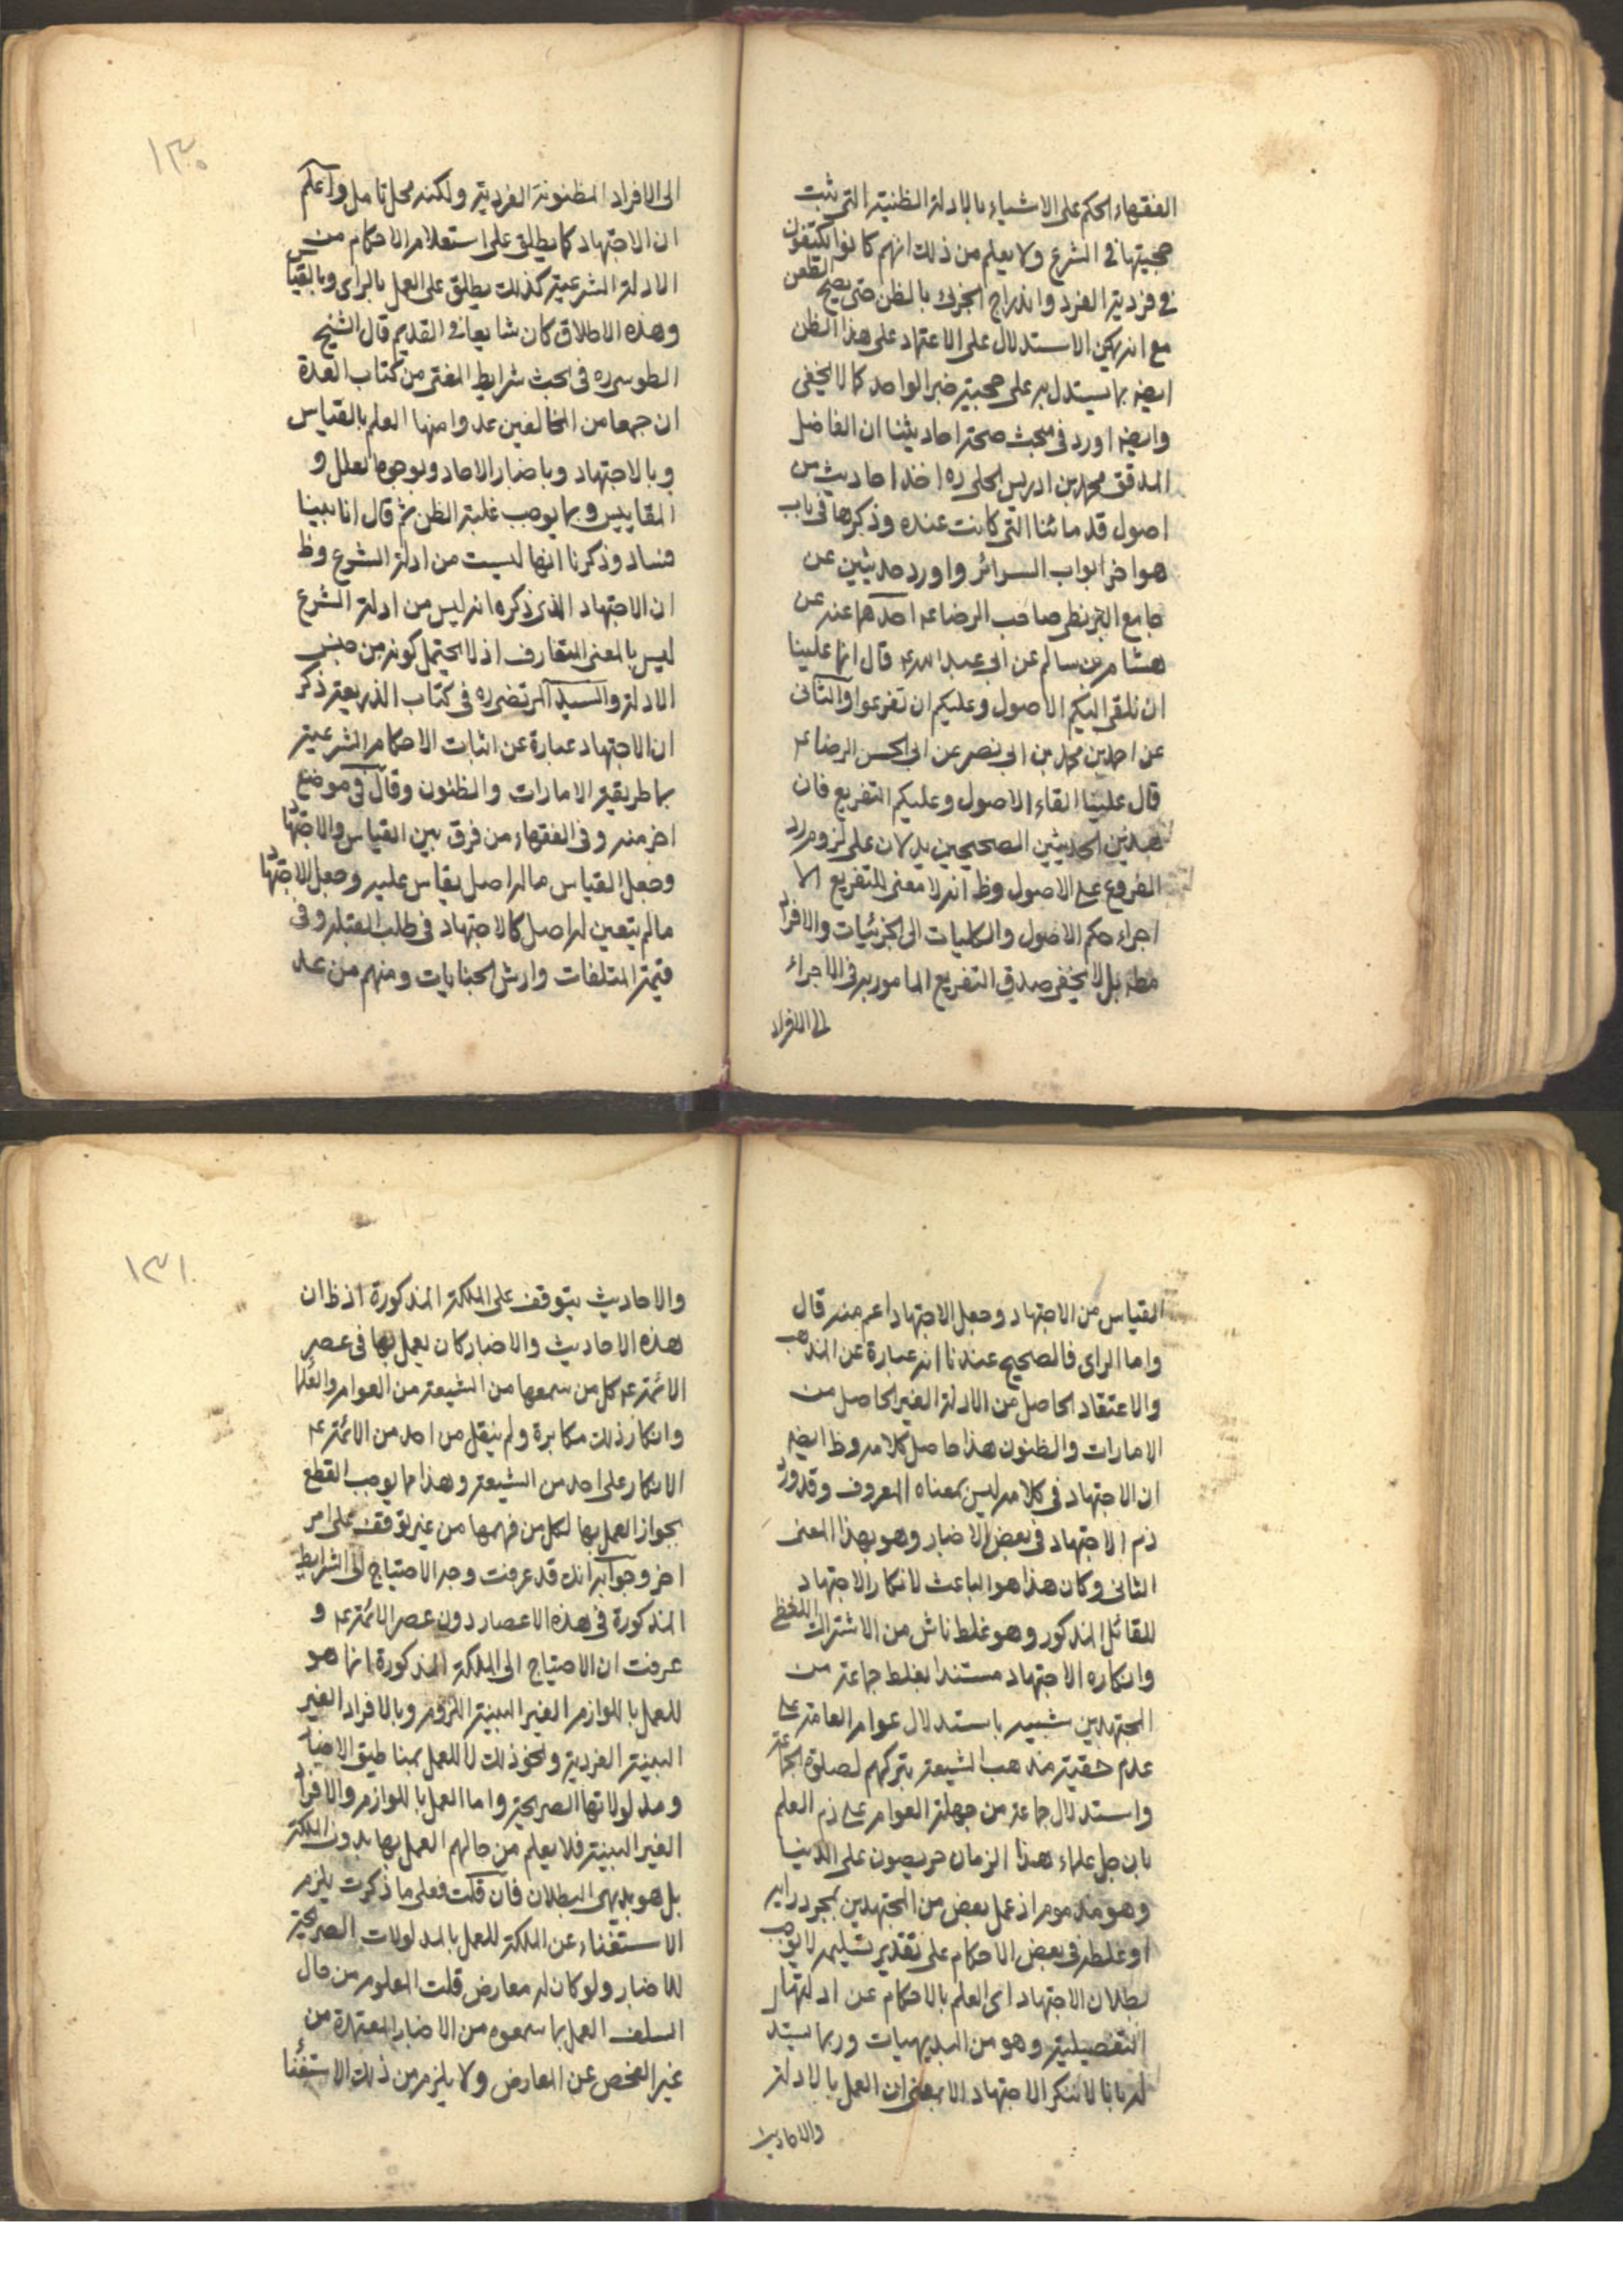 الفقهاء الحكم على الاشياء بالادلة الظنية التى ثبت
حجيتها فى الشرع ولا يعلم من ذلك انهم كانوا يكتفون
فى فردية الفرد واندراج الجزئى بالظن حتى يصح الطعن
مع انه يمكن الاستدلال على الاعتماد على هذا الظن
ايضه بما يستدل به على حجية خبر الواحد كما لا يخفى
وايضه اورد فى مبحث صحة احاديثنا ان الفاضل
المدقق محمد بن ادريس الحلى ره اخذ احاديث من
اصول قدمائنا التى كانت عنده وذكرها فى باب
هو اخر ابواب السرائر واورد حديثين عن
جامع البزنطى صاحب الرضا عه احدهما عنه عن
هشام بن سالم عن ابى عبد الله عه قال انما علينا
ان نلقى اليكم الاصول وعليكم ان تفرعوا والثانى
عن احمد بن محمد بن ابى نصر عن ابى الحسن الرضا عه
قال علينا القاء الاصول وعليكم التفريع فان
هذين الحديثين الصحيحين يدلان على لزوم رد
الفروع على الاصول وظ انه لا معنى للتفريع الا
اجراء حكم الاصول والكليات الى الجزئيات والافراد
مطه بل لا يخفى صدق التفريع المامور به فى الاجراء
الى الافراد
١٣٠
الى الافراد المظنونة الفردية ولكنه محل تامل واعلم
ان الاجتهاد كما يطلق على استعلام الاحكام من
الادلة الشرعية كذلك يطلق على العمل بالراى وبالقياس
وهذه الاطلاق كان شايعا فى القديم قال الشيخ
الطوسى ره فى بحث شرايط المفتى من كتاب العدة
ان جمعا من المخالفين عدوا منها العلم بالقياس
وبالاجتهاد وباخبار الاحاد وبوجوه العلل و
المقاييس وبما يوجب غلبة الظن ثم قال انا بينا
فساد وذكرنا انها ليست من ادلة الشرع وظ
ان الاجتهاد الذى ذكره انه ليس من ادلة الشرع
ليس بالمعنى المتعارف اذ لا يحتمل كونه من جنس
الادلة والسيد المرتضى ره فى كتاب الذريعة ذكر
ان الاجتهاد عبارة عن اثبات الاحكام الشرعية
بما طريقه الامارات والظنون وقال فى موضع
اخر منه وفى الفقهاء من فرق بين القياس والاجتهاد
وجعل القياس ماله اصل يقاس عليه وجعل الاجتهاد
مالم يتعين له اصل كالاجتهاد فى طلب القبلة وفى
قيمة المتلفات وارش الجنايات ومنهم من عد
القياس من الاجتهاد وجعل الاجتهاد اعم منه قال
واما الراى فالصحيح عندنا انه عبارة عن المذهب
والاعتقاد الحاصل من الادلة الغير الحاصل من
الامارات والظنون هذا حاصل كلامه وظ ايضه
ان الاجتهاد فى كلامه ليس بمعناه المعروف وقد ورد
ذم الاجتهاد فى بعض الاخبار وهو بهذا المعنى
الثانى وكان هذا هو الباعث لانكار الاجتهاد
للقائل المذكور وهو غلط ناش من الاشتراك اللفظى
وانكاره الاجتهاد مستندا بغلط جماعة من
المجتهدين شبيه باستدلال عوام العامة على
عدم حقية مذهب الشيعة بتركهم لصلوة الجماعة
واستدلال جماعة من جهلة العوام على ذم العلم
بان جل علماء هذا الزمان حريصون على الدنيا
وهو مذموم اذ عمل بعض من المجتهدين بمجرد رايه
او غلطه فى بعض الاحكام على تقدير تسليمه لا يوجب
بطلان الاجتهاد اى العلم بالاحكام عن ادلتها
التفصيلية وهو من البديهيات وربما يستدل
له بانا لا ننكر الاجتهاد الا بمعنى ان العمل بالادلة
والاحاديث
١٣١
والاحاديث يتوقف على الملكة المذكورة اذ ظ ان
هذه الاحاديث والاخبار كان يعمل بها فى عصر
الائمة عه كل من سمعها من الشيعة من العوام والعلماء
وانكار ذلك مكابرة ولم ينقل من احد من الائمة عه
الانكار على احد من الشيعة وهذا مما يوجب القطع
بجواز العمل بها لكل من فهمها من غير توقف على امر
اخر وجوابه انك قد عرفت وجه الاحتياج الى الشرايط
المذكورة فى هذه الاعصار دون عصر الائمة عه و
عرفت ان الاحتياج الى الملكة المذكورة انما هو
للعمل باللوازم الغير البينة اللزوم وبالافراد الغير
البينة الفردية ونحو ذلك لا للعمل بمناطيق الاخبار
ومدلولاتها الصريحة واما العمل باللوازم والافراد
الغير البينة فلا يعلم من حالهم العمل بها بدون الملكة
بل هو بديهى البطلان فان قلت فعلى ما ذكرت يلزم
الاستغناء عن الملكة للعمل بالمدلولات الصريحة
للاخبار ولو كان له معارض قلت المعلوم من حال
السلف العمل بما سمعوه من الاخبار المعتمدة من
غير الفحص عن المعارض ولا يلزم من ذلك الاستغناء